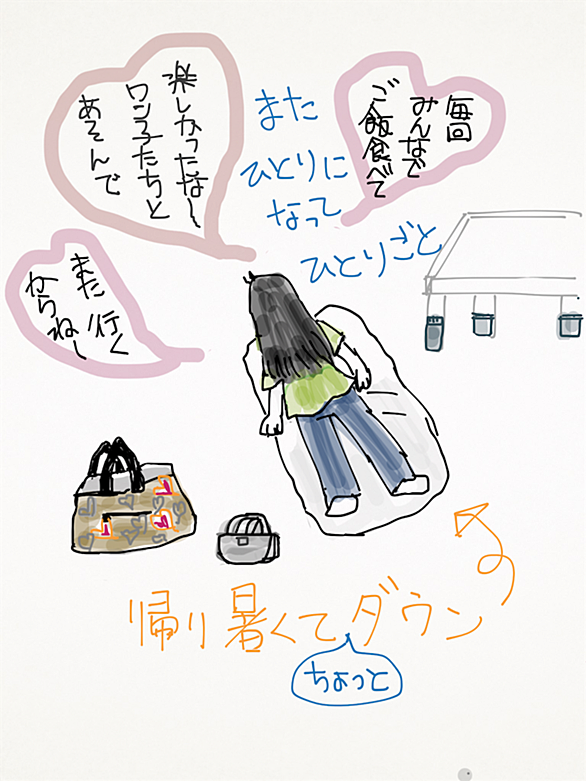 毎回
みんなで
ご飯食べて
また
ひとりに
なって
ひとりごと
楽しかったな〜
ワン子たちと
あそんで
また行く
からねー
帰り暑くてダウン
ちょっと